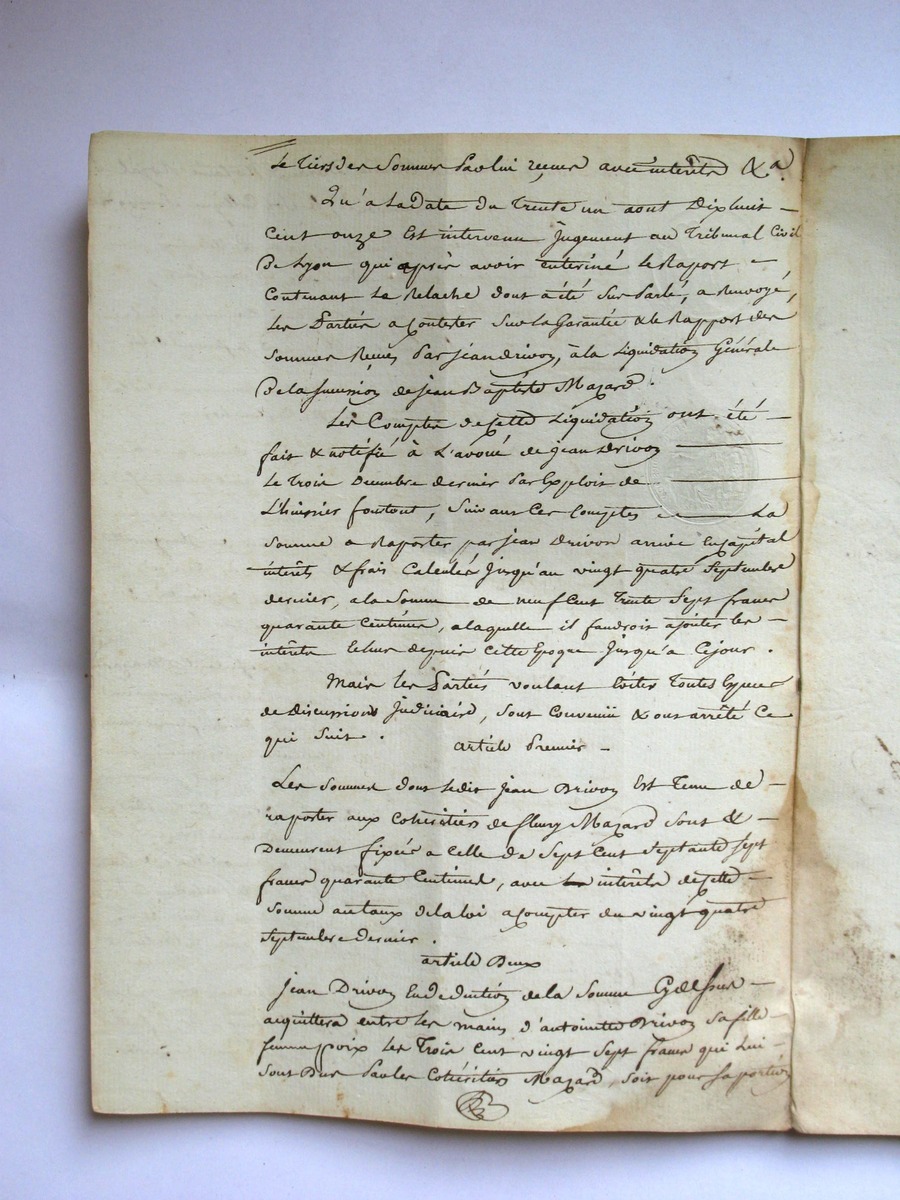 le Tiers des Sommes par lui reçues avec intérêts &a.
Qu'a la Date du Trente un aout Dix huit
Cent onze Est intervenu Jugement au Tribunal Civil
De Lyon qui après avoir enteriné le Raport
Contenant la Relache dont a été Sus Parlé, a Renvoyé,
les Parties a Contester Sur la Garantie & le Rapport des
Sommes Reçues Par jean drivon, à la Liquidation Générale
De la Succession de jean Baptiste Mazard.
Les Comptes de Cette Liquidation ont été
fait & notifié à L'avoué de jean Drivon
Le Trois Decembre dernier Par Exploit de
L'huissier foutout, Suivant Ces Comptes La
Somme a Raporter par jean Drivon arrive En Capital
intérêts & frais Calculés Jusqu'au vingt quatre Septembre
dernier, a la Somme de neuf Cent Trente Sept francs
quarante Centimes, a laquelle il faudroit ajouter les
intérêts depuis Cette Epoque Jusqu'a Cejour.
Mais les Parties voulant Eviter Toutes Especes
de Discussions Judiciaire, Sont Convenu & ont arrêté Ce
qui Suit.
article Premier
Les Sommes dont ledit jean Drivon Est Tenu de
raporter aux Cohéritiers de fleury Mazard Sont &
Demeurent fixées a Celle De Sept Cent Septante Sept
francs quarante Centimes, avec intérêts de Cette
Somme au taux de la loi a Compter du vingt quatre
Septembre Dernier.
article Deux
jean Drivon En deduction de la Somme Cy dessus
acquittera entre les mains d'antoinette Drivon Sa fille
femme Poix les Trois Cent vingt Sept francs qui lui
Sont Dus Par les Cohéritiers Mazard, Soit pour Sa portion